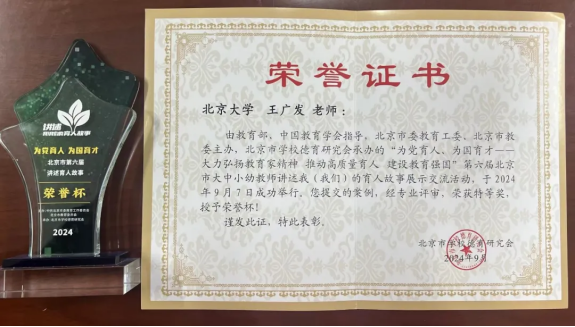 讲述
我(我们)的育人故事
为党育人 为国育才
北京市第六届
讲述育人故事
荣誉杯
2024
荣誉证书
北京大学 王广发 老师:
由教育部、中国教育学会指导,北京市委教育工委、北京市教
委主办,北京市学校德育研究会承办的“为党育人、为国育才——
大力弘扬教育家精神 推动高质量育人 建设教育强国”第六届北京
市大中小幼教师讲述我(我们)的育人故事展示交流活动,于 2024
年 9 月 7 日成功举行。您提交的案例,经专业评审,荣获特等奖,
授予荣誉杯!
谨发此证,特此表彰。
北京市学校德育研究会
2024年9月